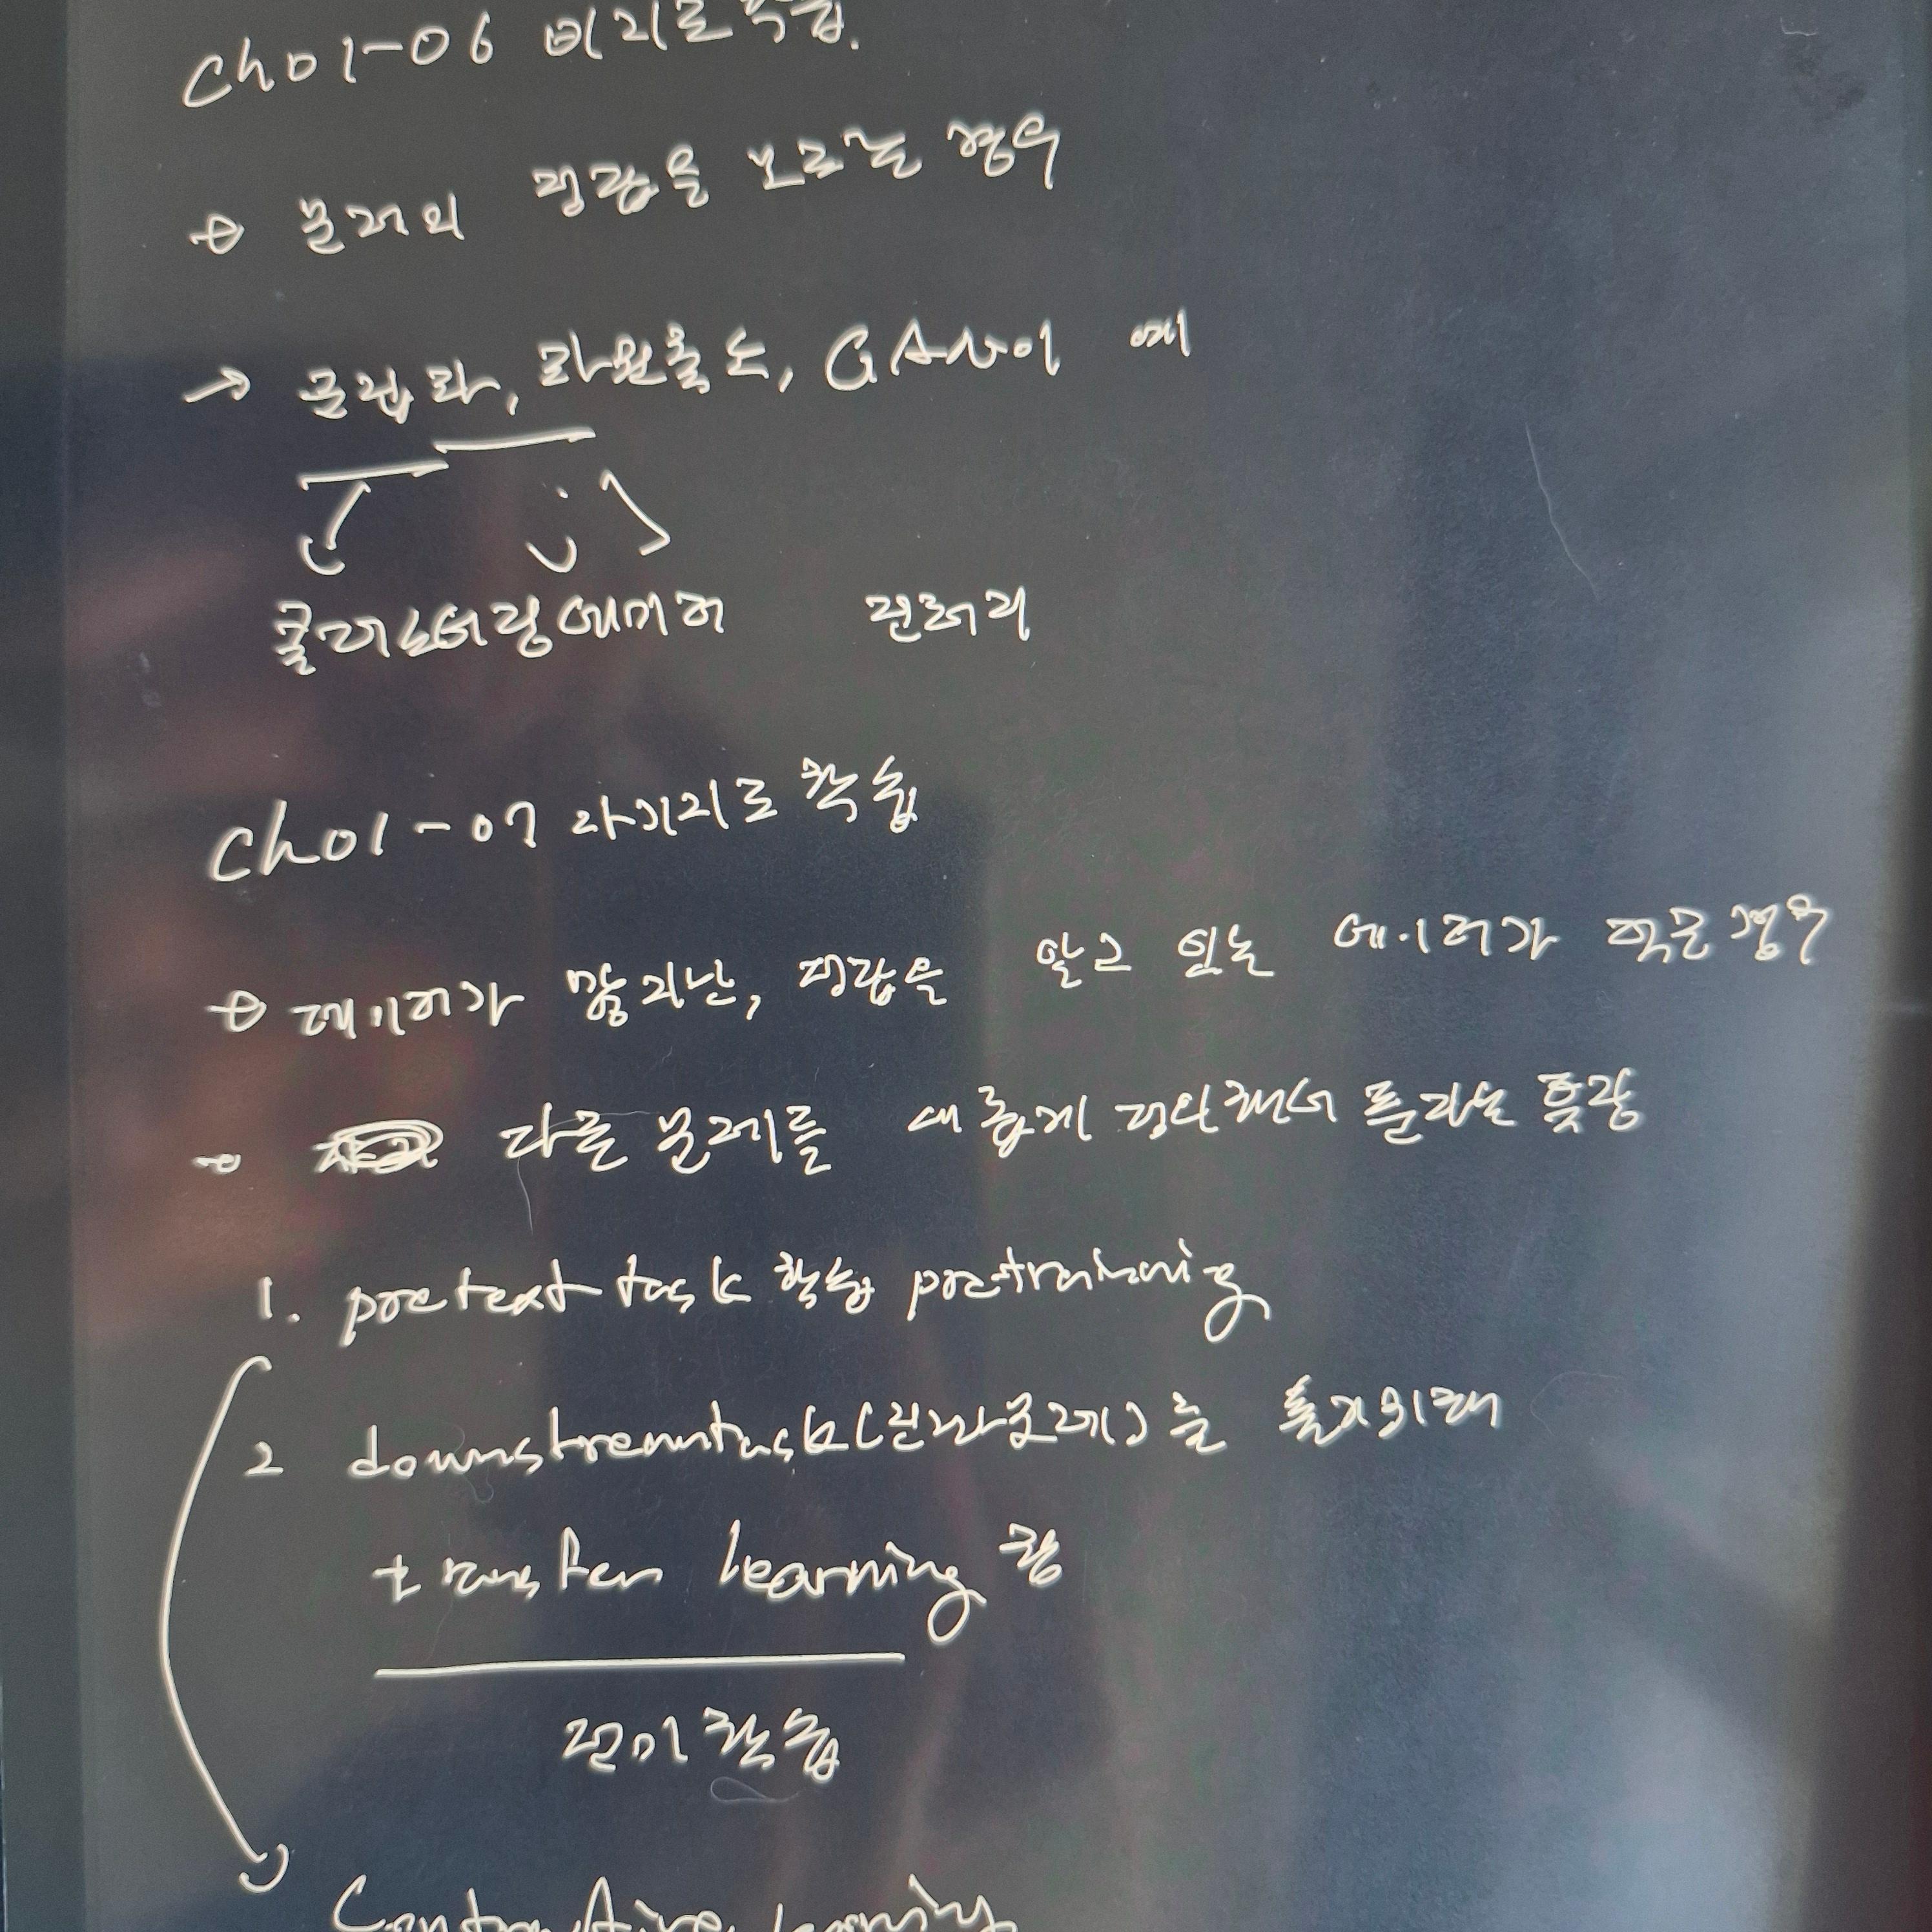 Ch01-06 비지도학습.
→ 문제의 정답을 모르는 경우
→ 군집화, 차원축소, GAN이 예
클러스터링 데이터 전처리
Ch01-07 자기지도 학습
→ 데이터가 많지만, 정답을 알고 있는 데이터가 적은 경우
→ 다른 문제를 새롭게 정의해서 푼다는 특징
1. pretext task 학습 pretraining
2 downstreamtask(진짜문제)를 풀기위해
transfer learning 함
전이학습
Contrastive learning